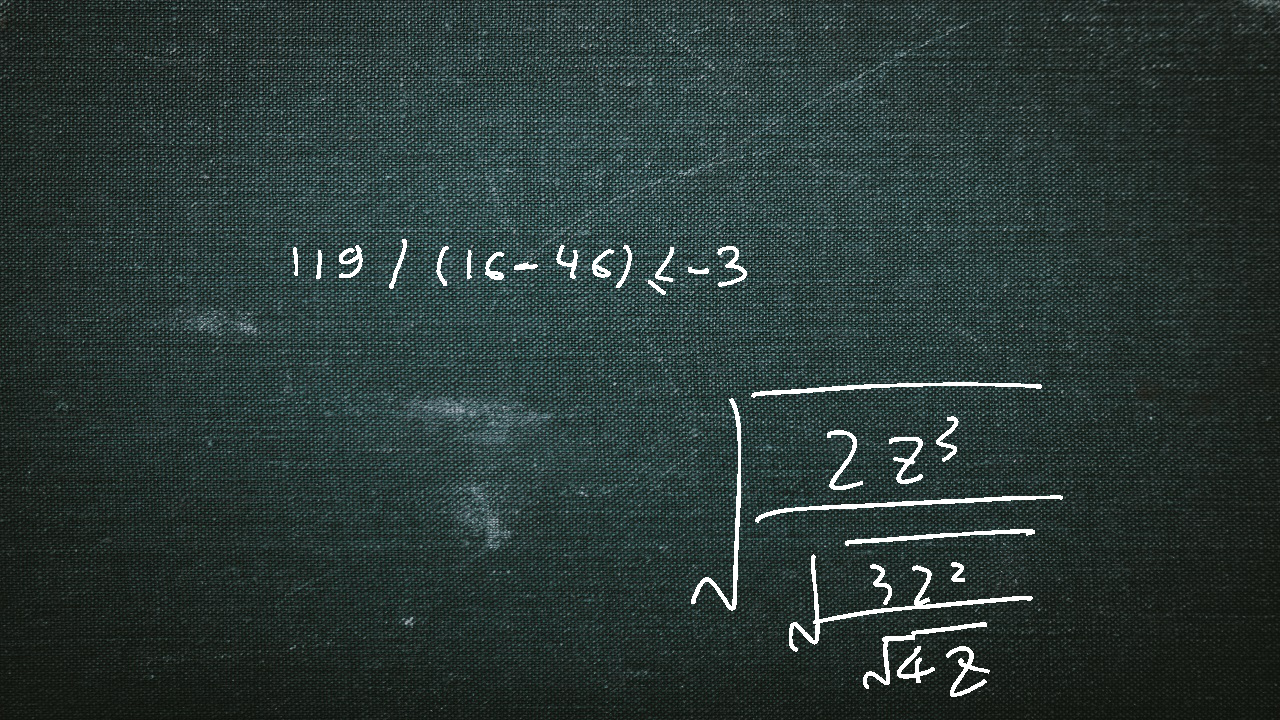 119 / (16 - 46) ≤ -3
\sqrt{\frac{2z^3}{\sqrt{\frac{3z^2}{\sqrt{4z}}}}}